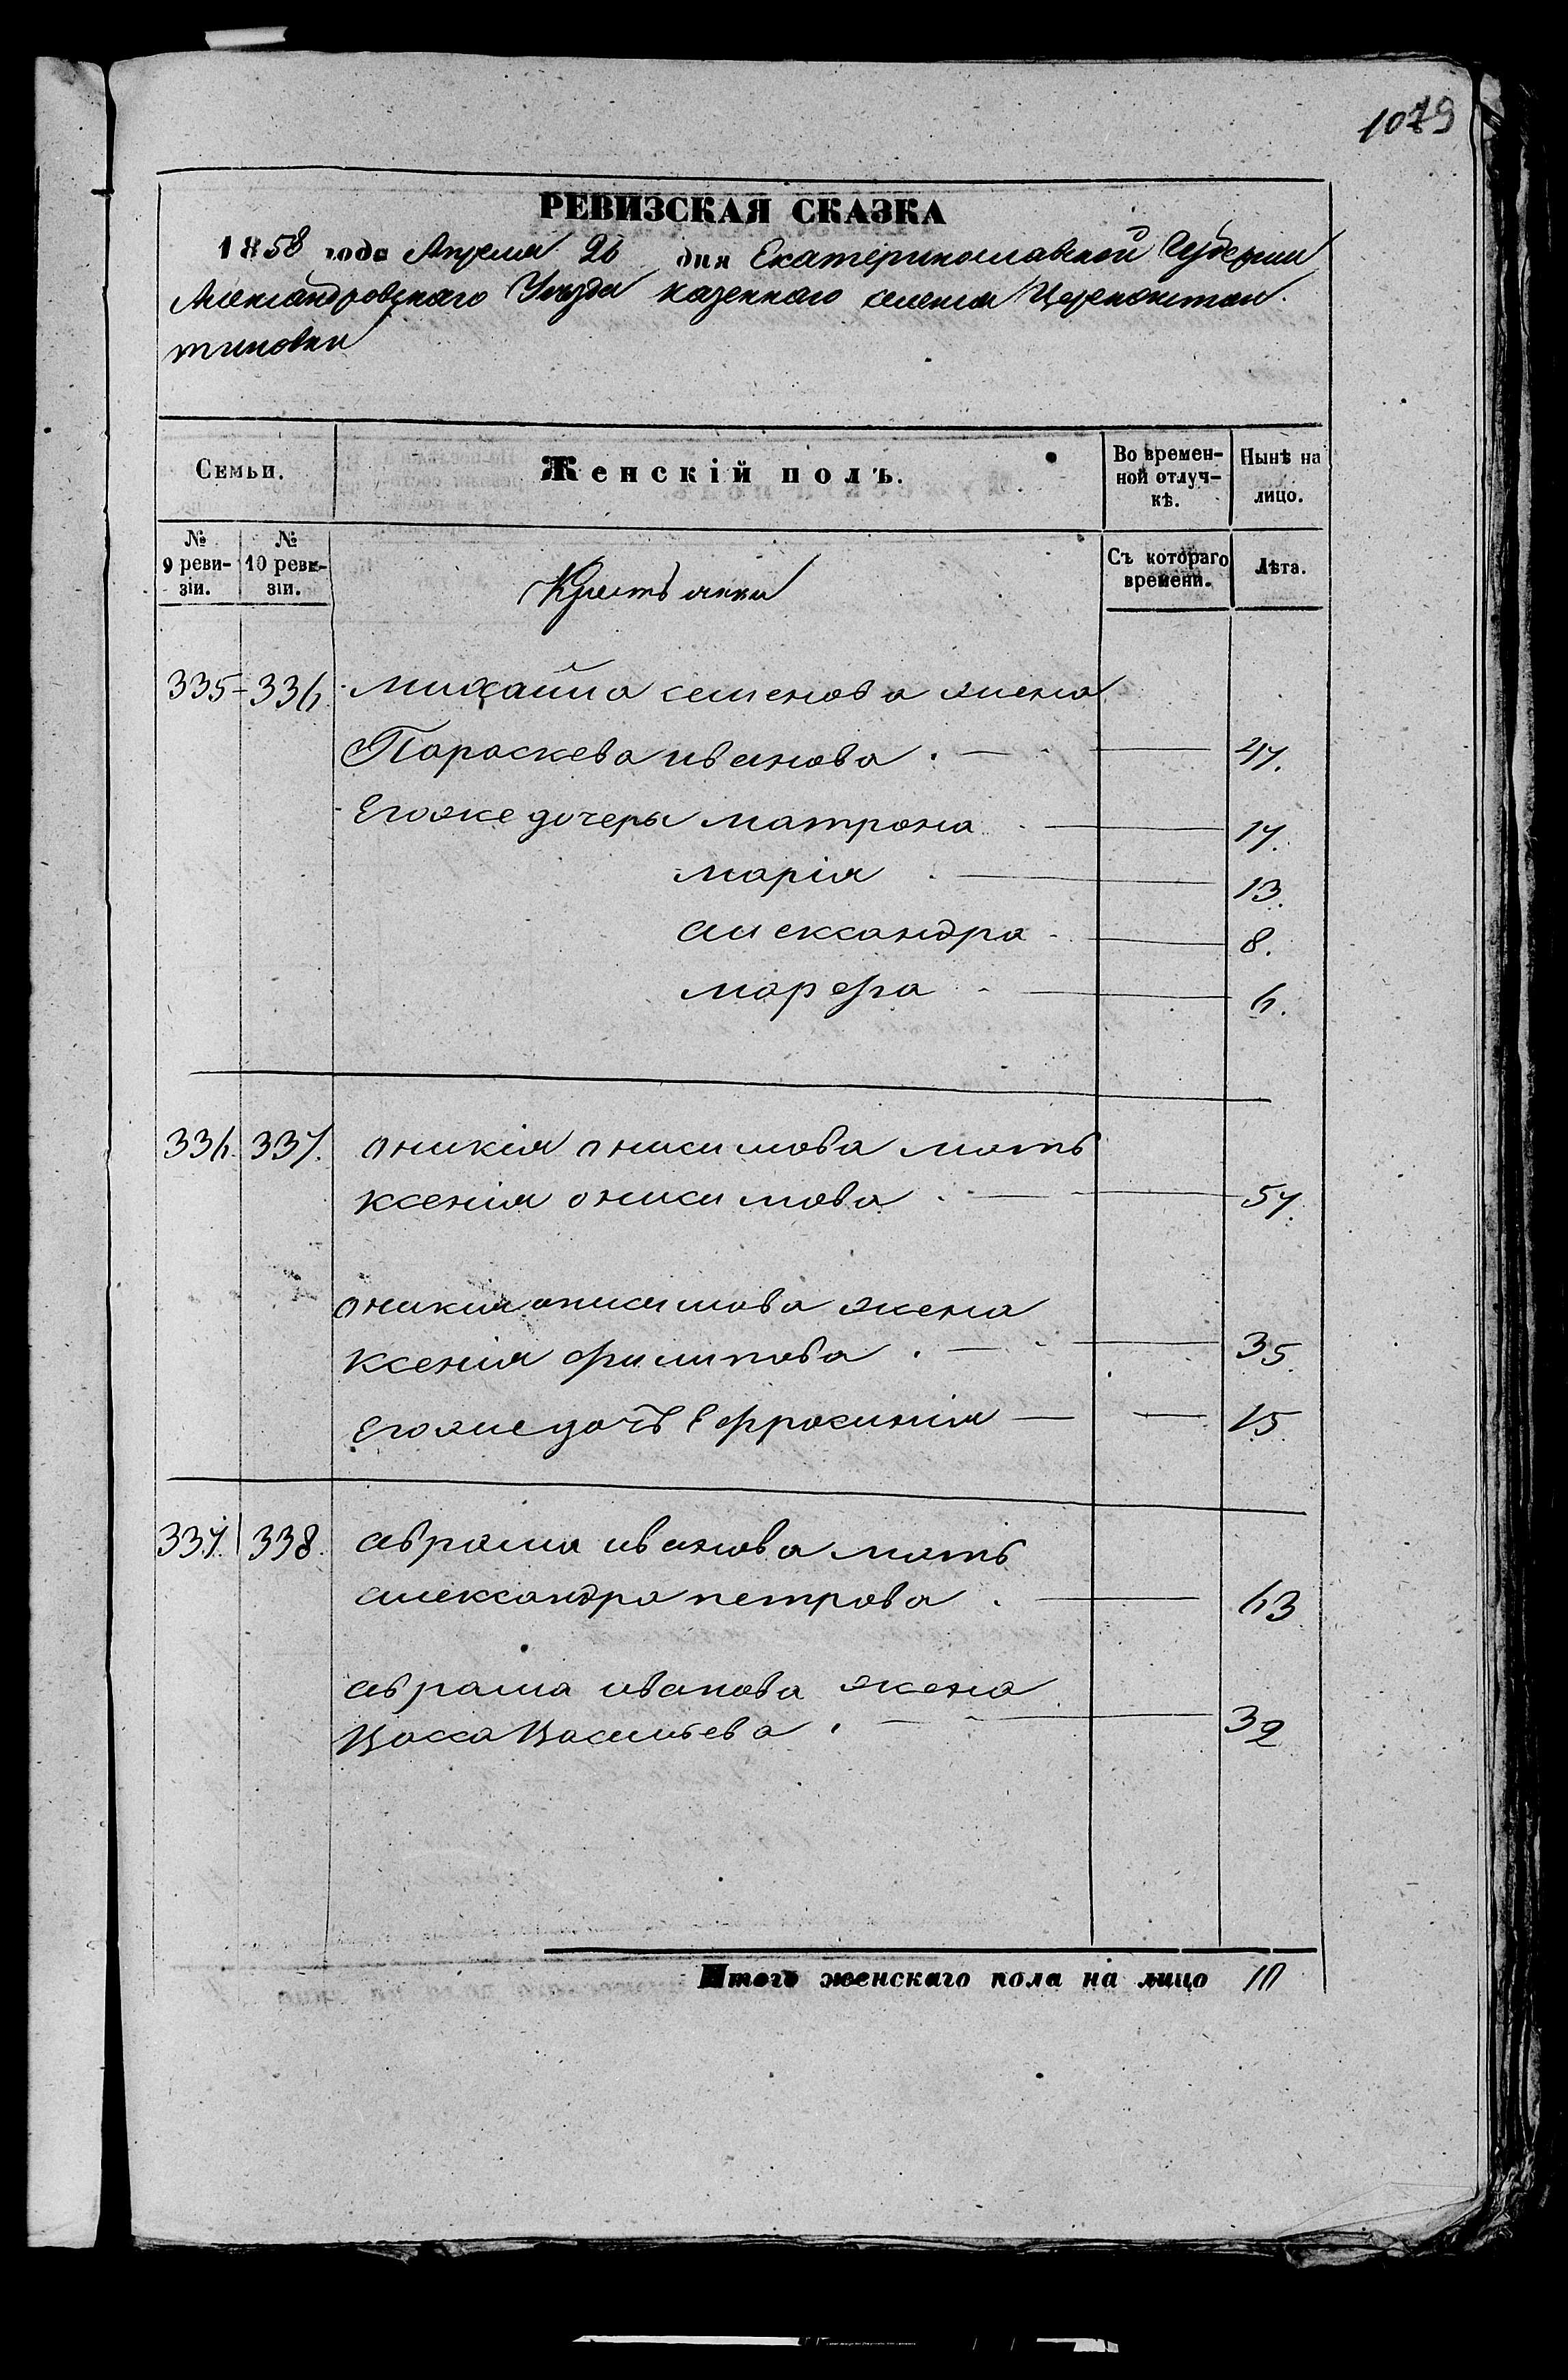 1079
РЕВИЗСКАЯ СКАЗКА
1858 года Апреля 26 дня Екатеринославской Губернии
Александровскаго Уезда казеннаго селения Цареконстан
тиновки
Семьи.
Женскій полъ.
Во времен-
ной отлуч-
кѣ.
Нынѣ на
лицо.
№
9 реви-
зіи.
№
10 реви-
зіи.
Крестьянки
Съ котораго
времени.
Лѣта.
335 - 336 михайла семенова жена
Параскева иванова . — 47.
Егоже дочеры матрона . — 17.
марія . — 13.
александра — 8.
марфа — 6.
336. 337. аникія анисимова мать
ксения анисимова . — 57.
аникия анисимова жена
ксения филипова . — 35.
егоже дочь Ефросиния — — 15.
337. 338. абрама иванова мать
александра петрова . — 63
абрама иванова жена
Васса Васильева . — 32
Итого женскаго пола на лицо 10